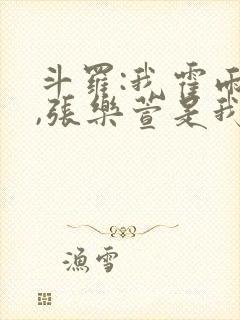 斗羅:我霍雨
,張樂萱是我
漁雪